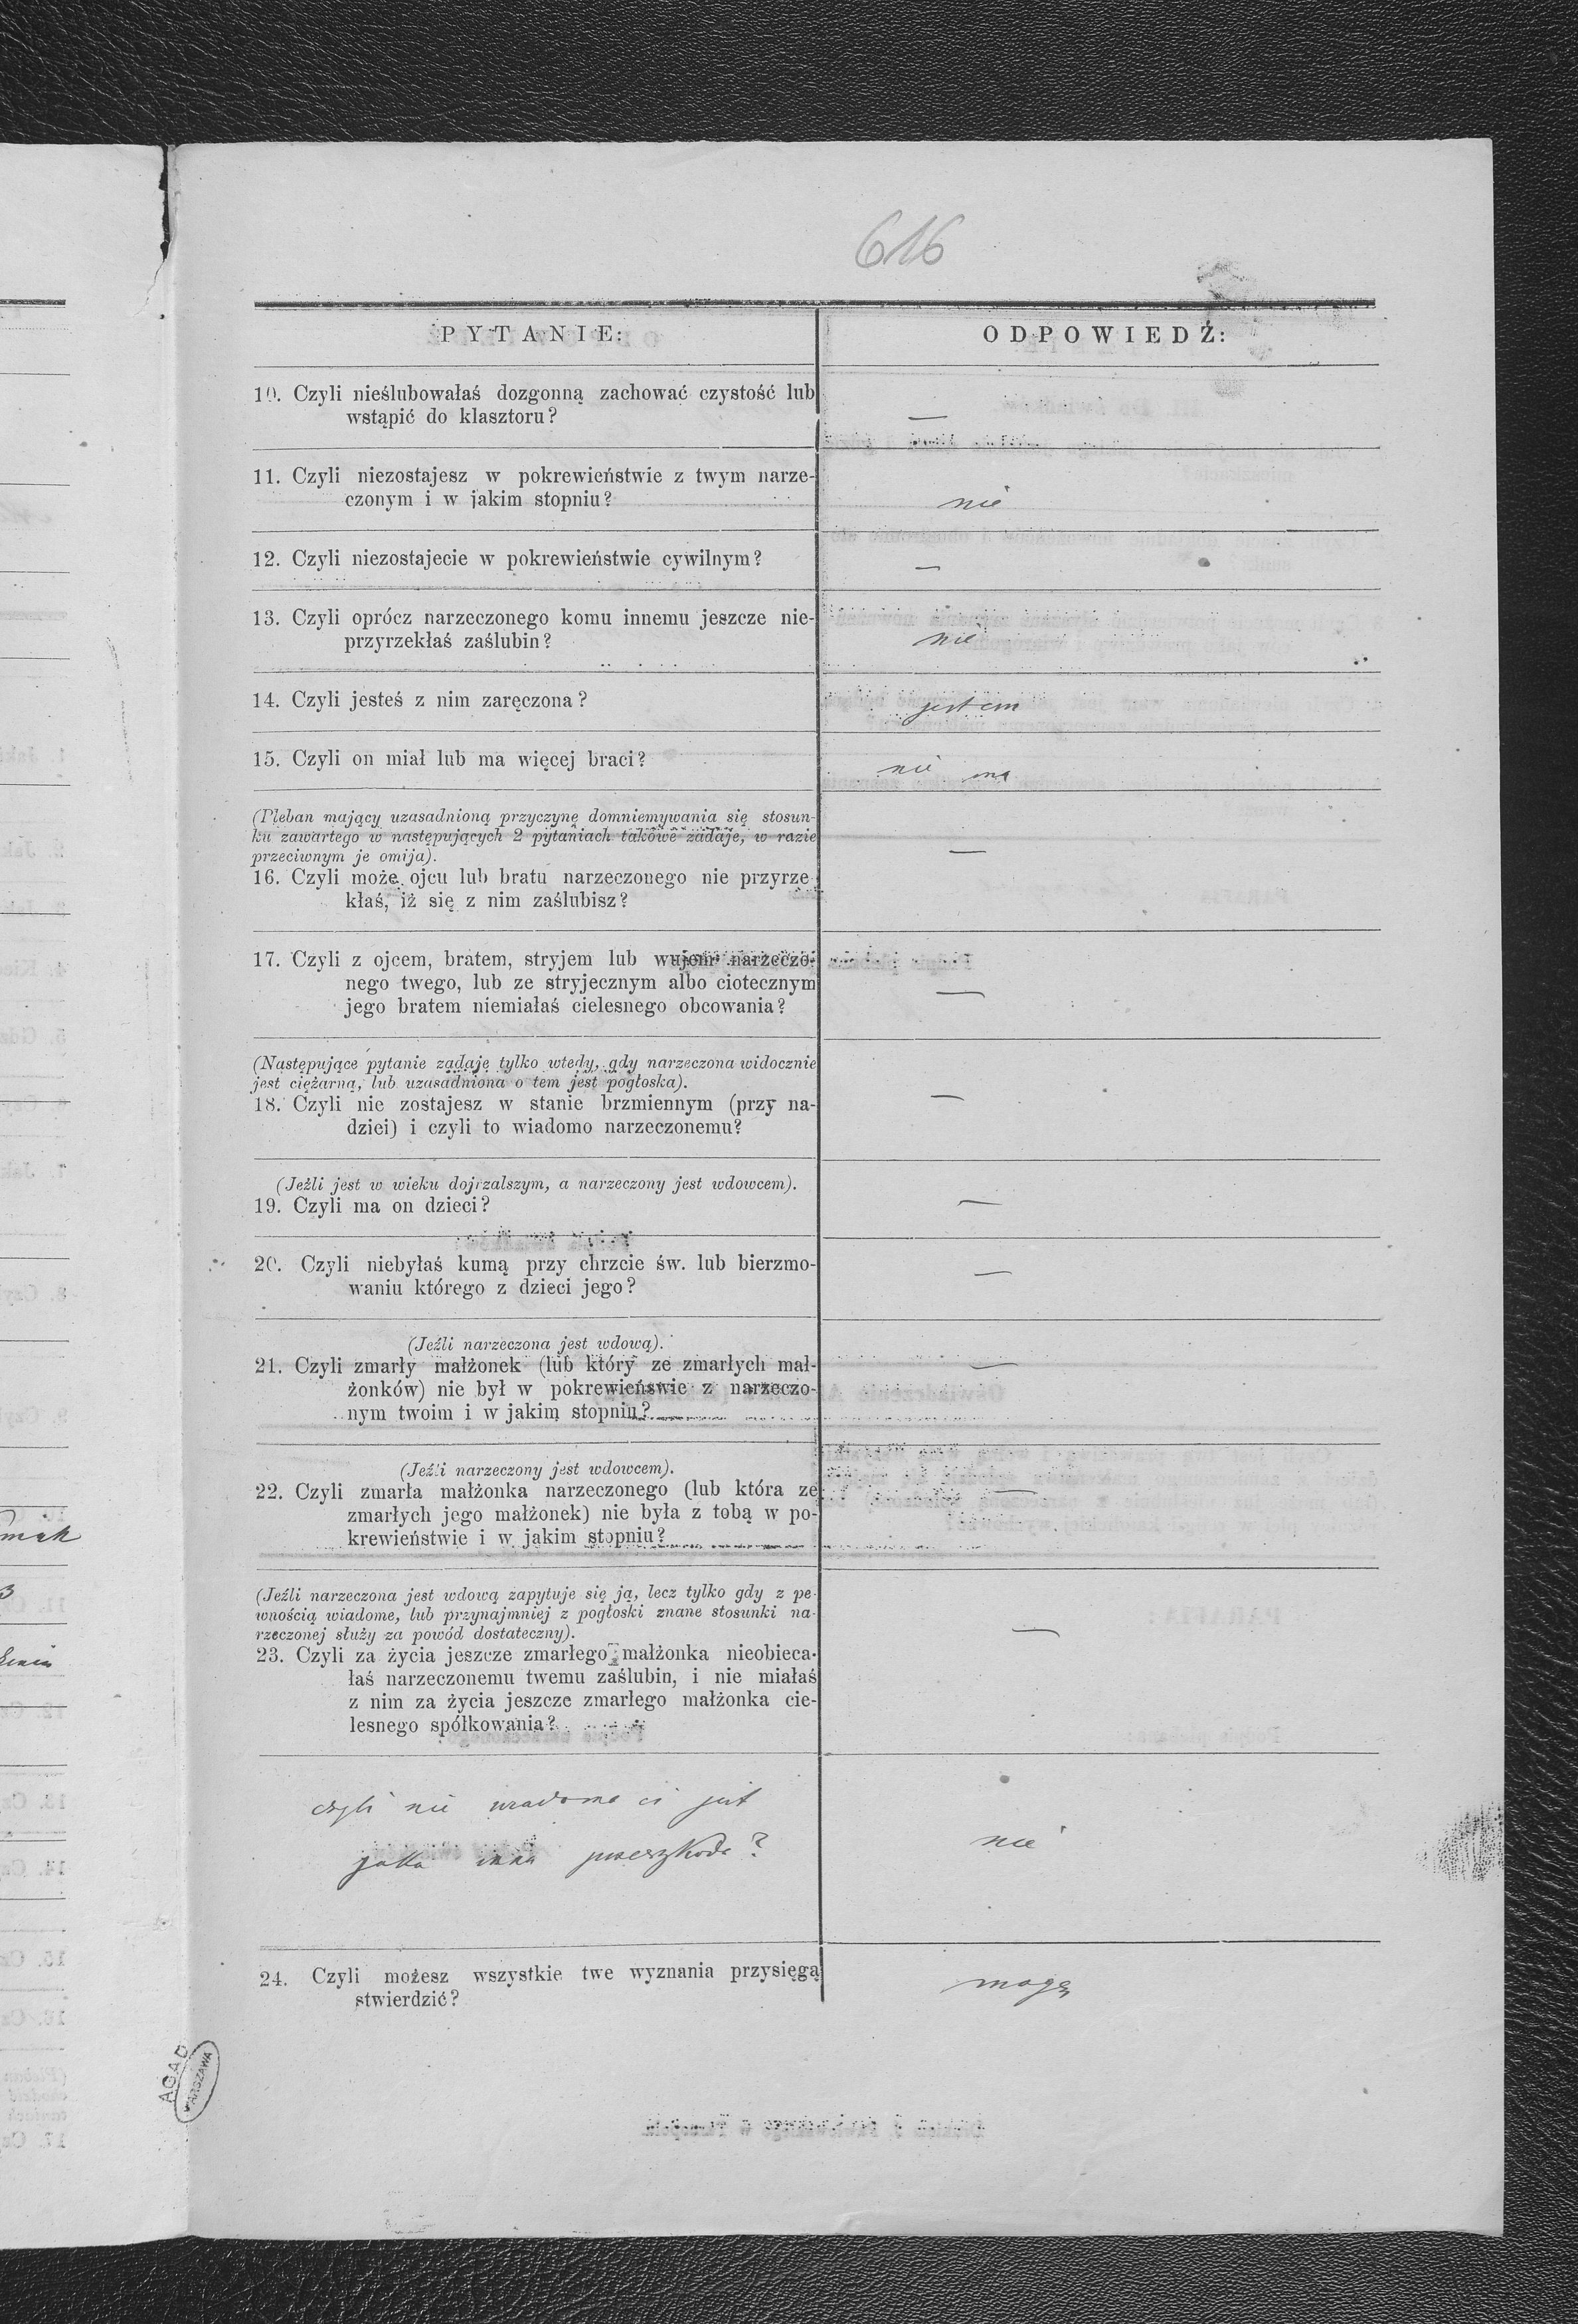 616
PYTANIE:
ODPOWIEDŹ:
10. Czyli nieślubowałaś dozgonną zachować czystość lub
wstąpić do klasztoru?
—
11. Czyli niezostajesz w pokrewieństwie z twym narze-
czonym i w jakim stopniu?
nie
12. Czyli niezostajecie w pokrewieństwie cywilnym?
—
13. Czyli oprócz narzeczonego komu innemu jeszcze nie-
przyrzekłaś zaślubin?
nie
14. Czyli jesteś z nim zaręczona?
jestem
15. Czyli on miał lub ma więcej braci?
nie ma
(Pleban mający uzasadnioną przyczynę domniemywania się stosun-
ku zawartego w następujących 2 pytaniach takowe zadaje, w razie
przeciwnym je omija).
16. Czyli może ojcu lub bratu narzeczonego nie przyrze
kłaś, iż się z nim zaślubisz?
—
17. Czyli z ojcem, bratem, stryjem lub wujem narzeczo-
nego twego, lub ze stryjecznym albo ciotecznym
jego bratem niemiałaś cielesnego obcowania?
—
(Następujące pytanie zadaje tylko wtedy, gdy narzeczona widocznie
jest ciężarną, lub uzasadniona o tem jest pogłoska).
18. Czyli nie zostajesz w stanie brzmiennym (przy na-
dziei) i czyli to wiadomo narzeczonemu?
—
(Jeżli jest w wieku dojrzalszym, a narzeczony jest wdowcem).
19. Czyli ma on dzieci?
—
20. Czyli niebyłaś kumą przy chrzcie św. lub bierzmo-
waniu którego z dzieci jego?
—
(Jeźli narzeczona jest wdową).
21. Czyli zmarły małżonek (lub który ze zmarłych mał-
żonków) nie był w pokrewieńswie z narzeczo-
nym twoim i w jakim stopniu?
—
(Jeźli narzeczony jest wdowcem).
22. Czyli zmarła małżonka narzeczonego (lub która ze
zmarłych jego małżonek) nie była z tobą w po-
krewieństwie i w jakim stopniu?
—
(Jeźli narzeczona jest wdową zapytuje się ją, lecz tylko gdy z pe-
wnością wiadome, lub przynajmniej z pogłoski znane stosunki na-
rzeczonej służy za powód dostateczny).
23. Czyli za życia jeszcze zmarłego małżonka nieobieca-
łaś narzeczonemu twemu zaślubin, i nie miałaś
z nim za życia jeszcze zmarłego małżonka cie-
lesnego spółkowania?
—
czyli nie wiadoma ci jest
jaka inna przeszkoda?
nie
24. Czyli możesz wszystkie twe wyznania przysięgą
stwierdzić?
mogę
AGAD
WARSZAWA